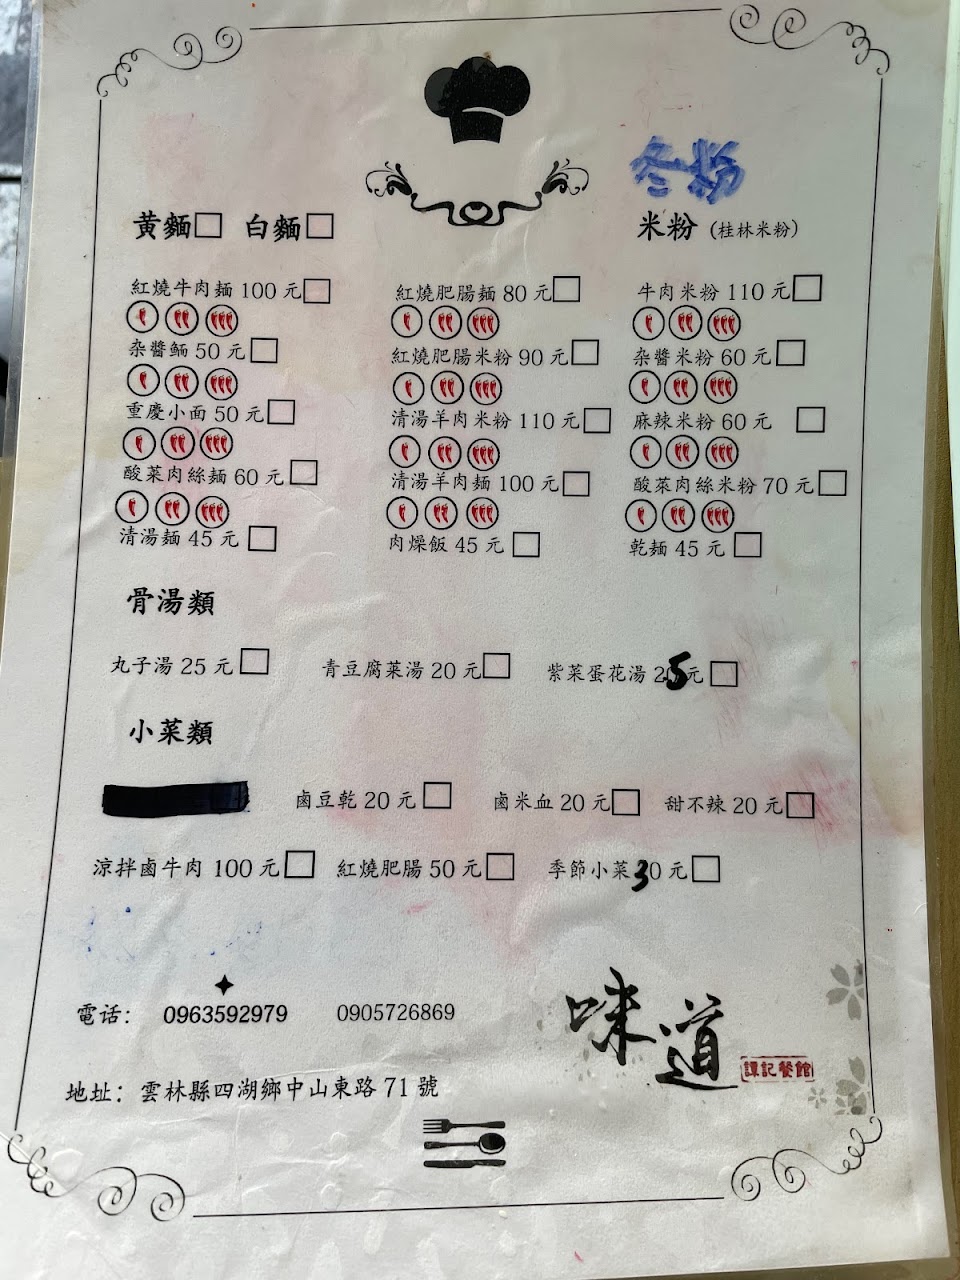 冬粉
黃麵□ 白麵□ 米粉（桂林米粉）
紅燒牛肉麵 100 元□ 紅燒肥腸麵 80 元□ 牛肉米粉 110 元□
杂醬麵 50 元□ 紅燒肥腸米粉 90 元□ 杂醬米粉 60 元□
重慶小面 50 元□ 清湯羊肉米粉 110 元□ 麻辣米粉 60 元□
酸菜肉絲麵 60 元□ 清湯羊肉麵 100 元□ 酸菜肉絲米粉 70 元□
清湯麵 45 元□ 肉燥飯 45 元□ 乾麵 45 元□
骨湯類
丸子湯 25 元□ 青豆腐菜湯 20 元□ 紫菜蛋花湯 25元□
小菜類
鹵豆乾 20 元□ 鹵米血 20 元□ 甜不辣 20 元□
涼拌鹵牛肉 100 元□ 紅燒肥腸 50 元□ 季節小菜30 元□
電话： 0963592979 0905726869
味道
譚記餐館
地址：雲林縣四湖鄉中山東路 71 號